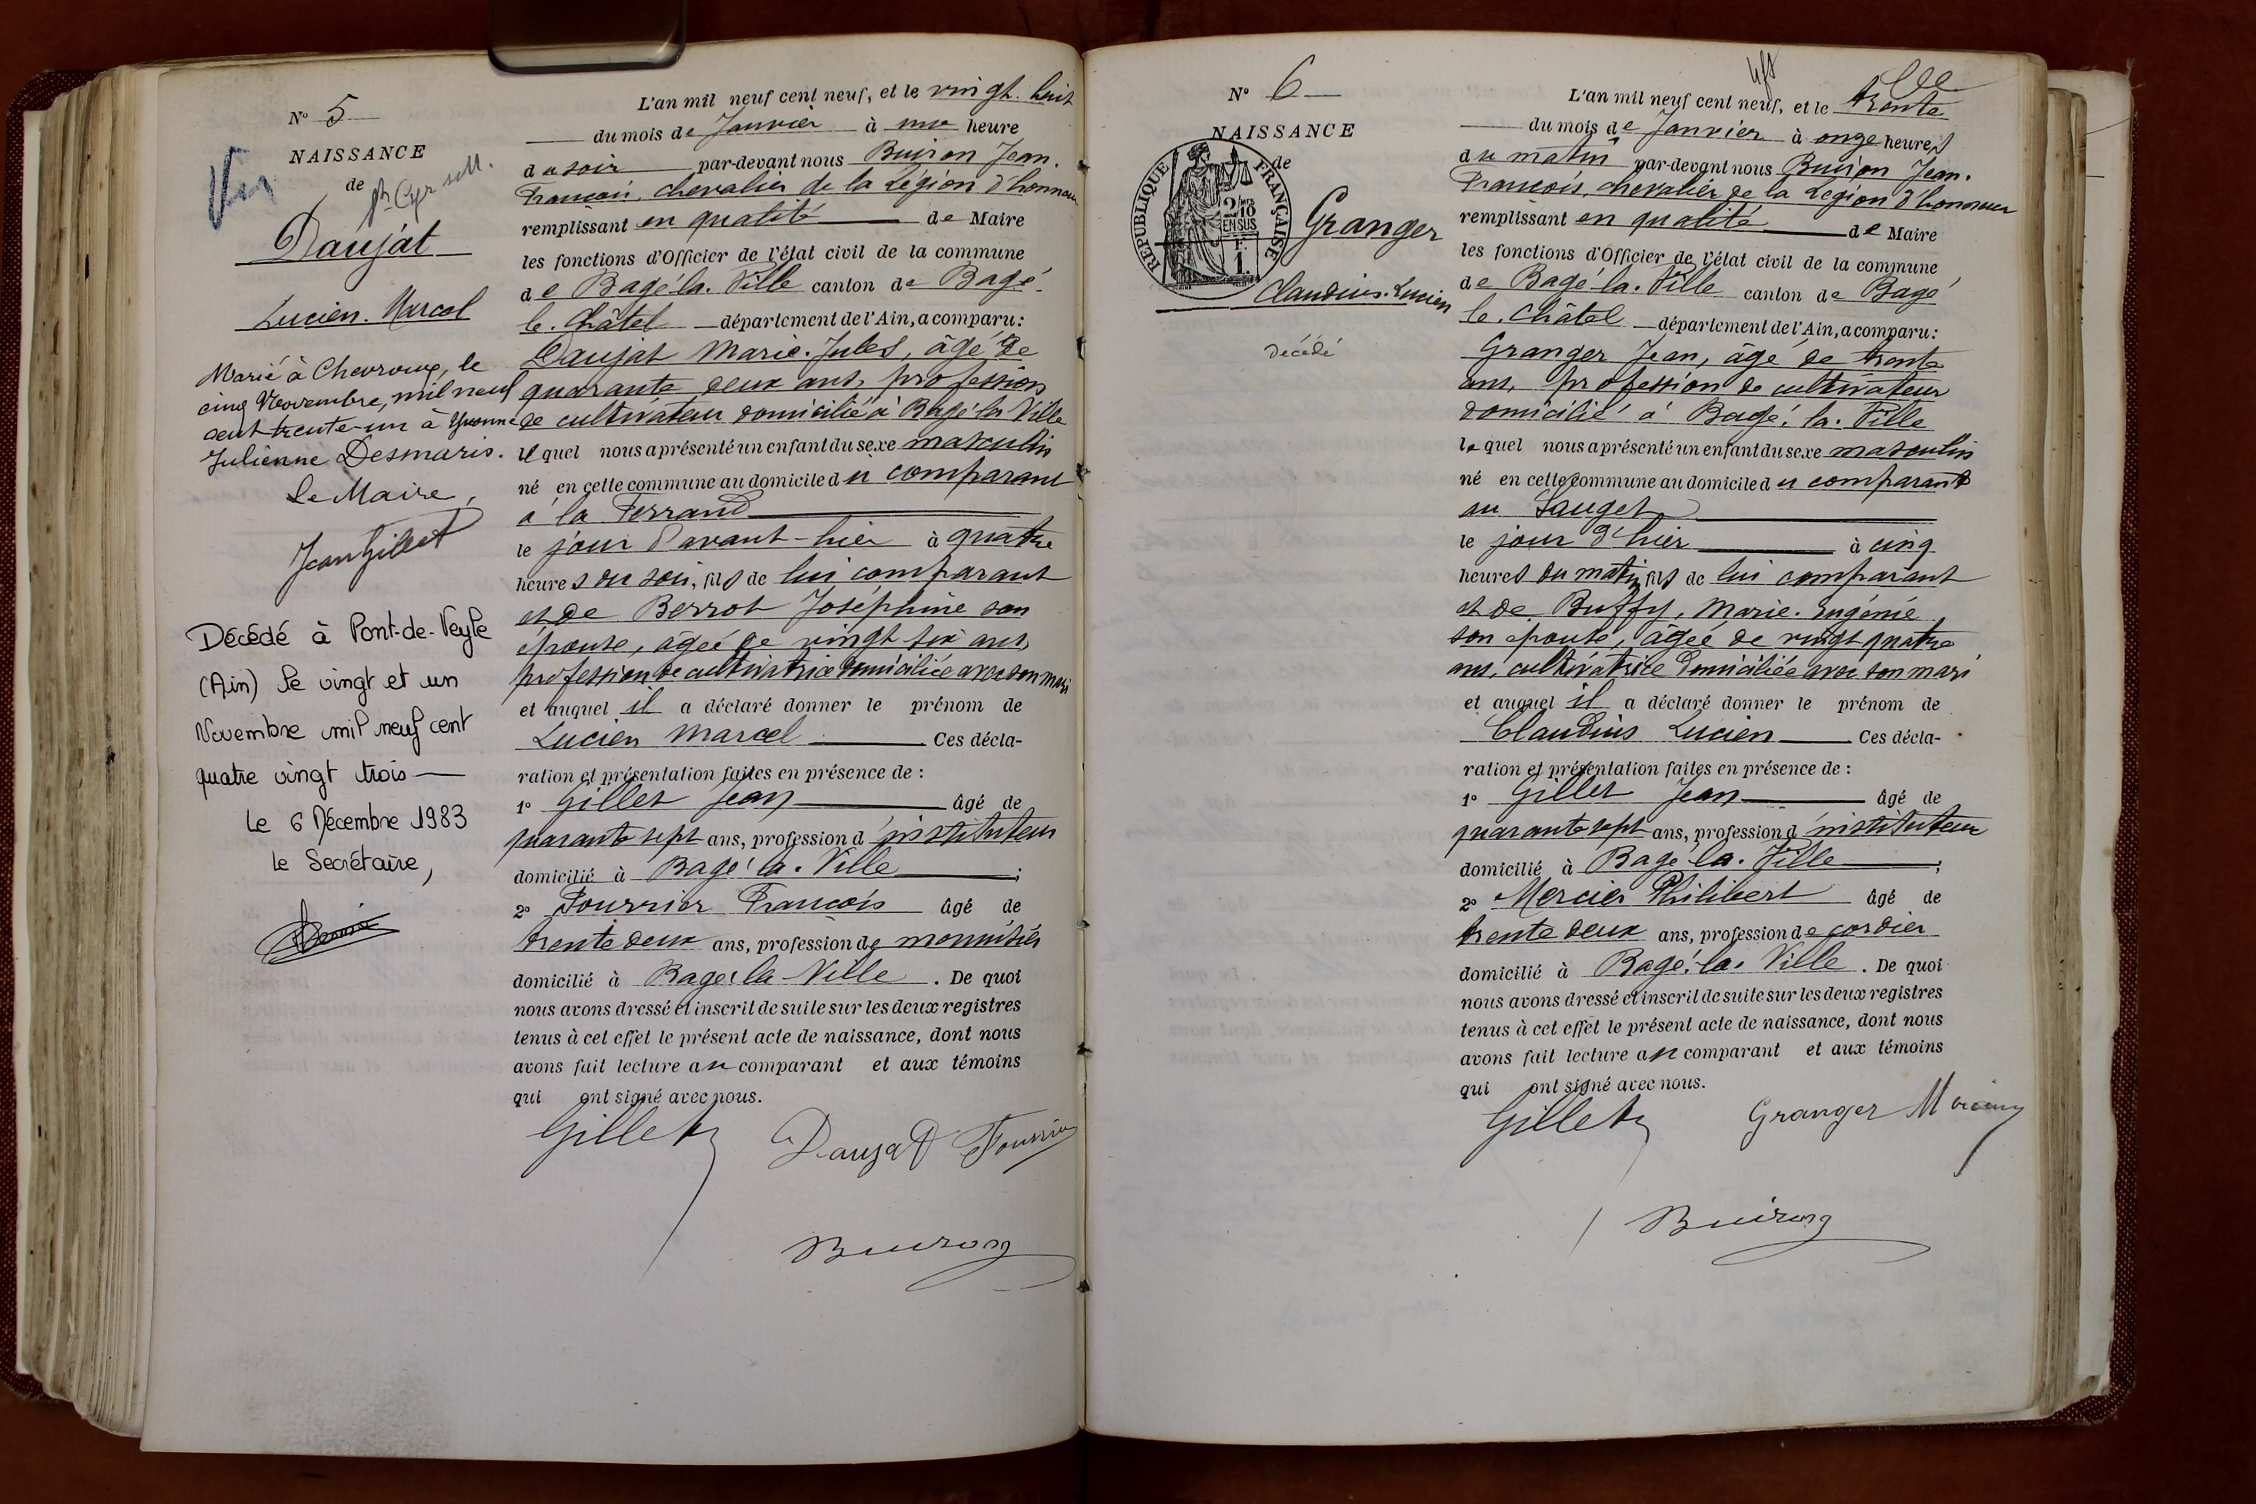 N° 5
NAISSANCE
de
St Cyr s M.
Daujat
Lucien. Marcel
Marié à Chevroux, le
cinq Novembre, mil neuf
cent trente-un à Yvonne
Julienne Desmaris.
Le Maire,
Jean Gillet
Décédé à Pont-de-Veyle
(Ain) le vingt et un
Novembre mil neuf cent
quatre vingt trois
Le 6 Décembre 1983
Le Secrétaire,
L'an mil neuf cent neuf, et le vingt. huit
du mois de Janvier à une heure
du soir par-devant nous Buiron Jean.
François, chevalier de la Légion d'honneur
remplissant en qualité de Maire
les fonctions d'Officier de l'état civil de la commune
de Bagé-la. Ville canton de Bagé-
le. Châtel département de l'Ain, a comparu:
Daujat Marie. Jules, âgé de
quarante deux ans, profession
de cultivateur domicilié à Bagé-la Ville
lequel nous a présenté un enfant du sexe masculin
né en cette commune au domicile du comparant
à la Ferrand
le jour d'avant-hier à quatre
heures du soir, fils de lui comparant
et de Berrot Joséphine son
épouse, âgée de vingt six ans,
profession de cultivatrice domiciliée avec son mari
et auquel il a déclaré donner le prénom de
Lucien Marcel Ces décla-
ration et présentation faites en présence de :
1° Gillet Jean âgé de
quarante sept ans, profession d'instituteur
domicilié à Bagé-la. Ville ;
2° Fourrier François âgé de
trente deux ans, profession de
domicilié à Bagé-la-Ville . De quoi
nous avons dressé et inscrit de suite sur les deux registres
tenus à cet effet le présent acte de naissance, dont nous
avons fait lecture au comparant et aux témoins
qui ont signé avec nous.
Gillet Daujat Fourrier
Buiron
N° 6
NAISSANCE
de
RÉPUBLIQUE FRANÇAISE
2/10
EN SUS
F.
1.
Granger
Claudius. Lucien
Décédé
L'an mil neuf cent neuf, et le trente
du mois de Janvier à onze heures
du matin par-devant nous Buiron Jean.
François, chevalier de la Légion d'honneur
remplissant en qualité de Maire
les fonctions d'Officier de l'état civil de la commune
de Bagé-la. Ville canton de Bagé
le. Châtel département de l'Ain, a comparu:
Granger Jean, âgé de trente
ans, profession de cultivateur
domicilié à Bagé-la. Ville
lequel nous a présenté un enfant du sexe masculin
né en cette commune au domicile du comparant
au Sauget
le jour d'hier à cinq
heures du matin, fils de lui comparant
et de Buffy, Marie. Eugénie
son épouse, âgée de vingt quatre
ans, cultivatrice domiciliée avec son mari
et auquel il a déclaré donner le prénom de
Claudius Lucien Ces décla-
ration et présentation faites en présence de :
1° Gillet Jean âgé de
quarante sept ans, profession d'instituteur
domicilié à Bagé-la. Ville ;
2° Mercier Philibert âgé de
trente deux ans, profession de cordier
domicilié à Bagé-la. Ville . De quoi
nous avons dressé et inscrit de suite sur les deux registres
tenus à cet effet le présent acte de naissance, dont nous
avons fait lecture au comparant et aux témoins
qui ont signé avec nous.
Gillet Granger Mercier
Buiron